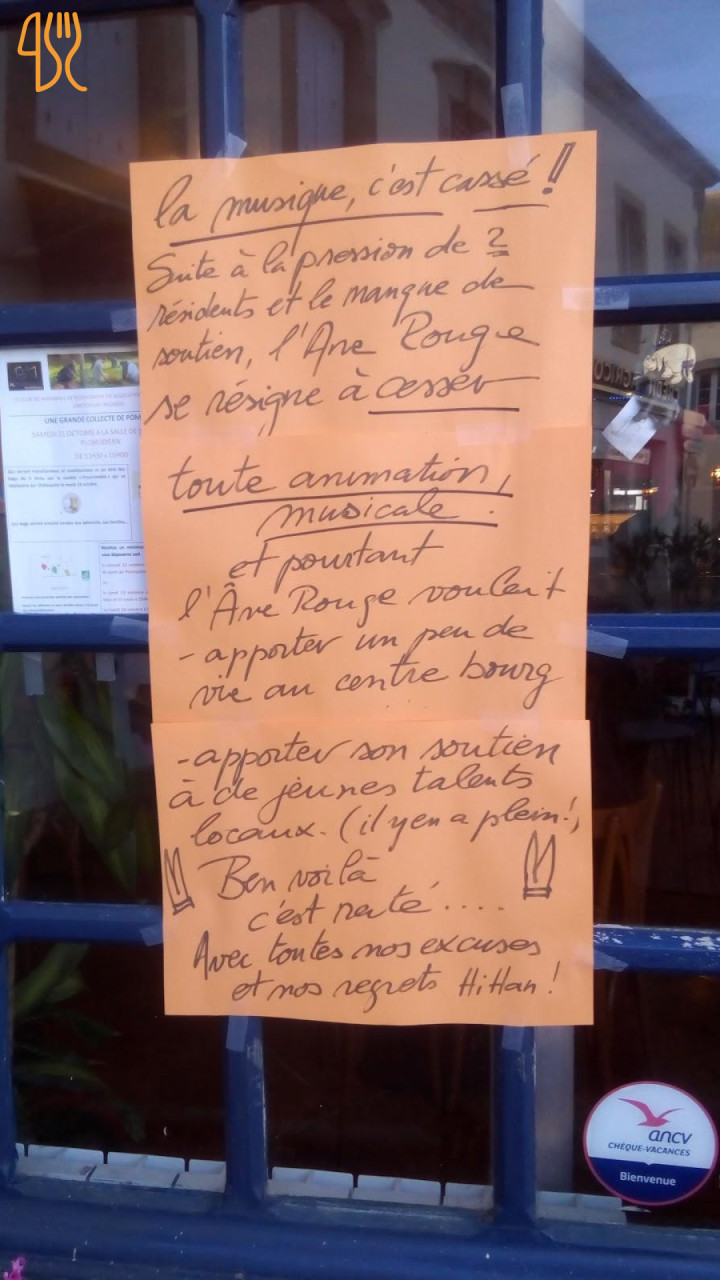 la musique, c'est cassé !!
Suite à la pression de 2
résidents et le manque de
soutien, l'Ane Rouge
se résigne à cesser
toute animation,
musicale.
et pourtant
l'Âne Rouge voulait
- apporter un peu de
vie au centre bourg
- apporter son soutien
à de jeunes talents
locaux. (il y en a plein!)
Ben voilà
c'est raté ....
Avec toutes nos excuses
et nos regrets HiHan !
UNE GRANDE COLLECTE DE POM
SAMEDI 21 OCTOBRE A LA SALLE DE
PLOMODIERN
ancv
CHÈQUE-VACANCES
Bienvenue